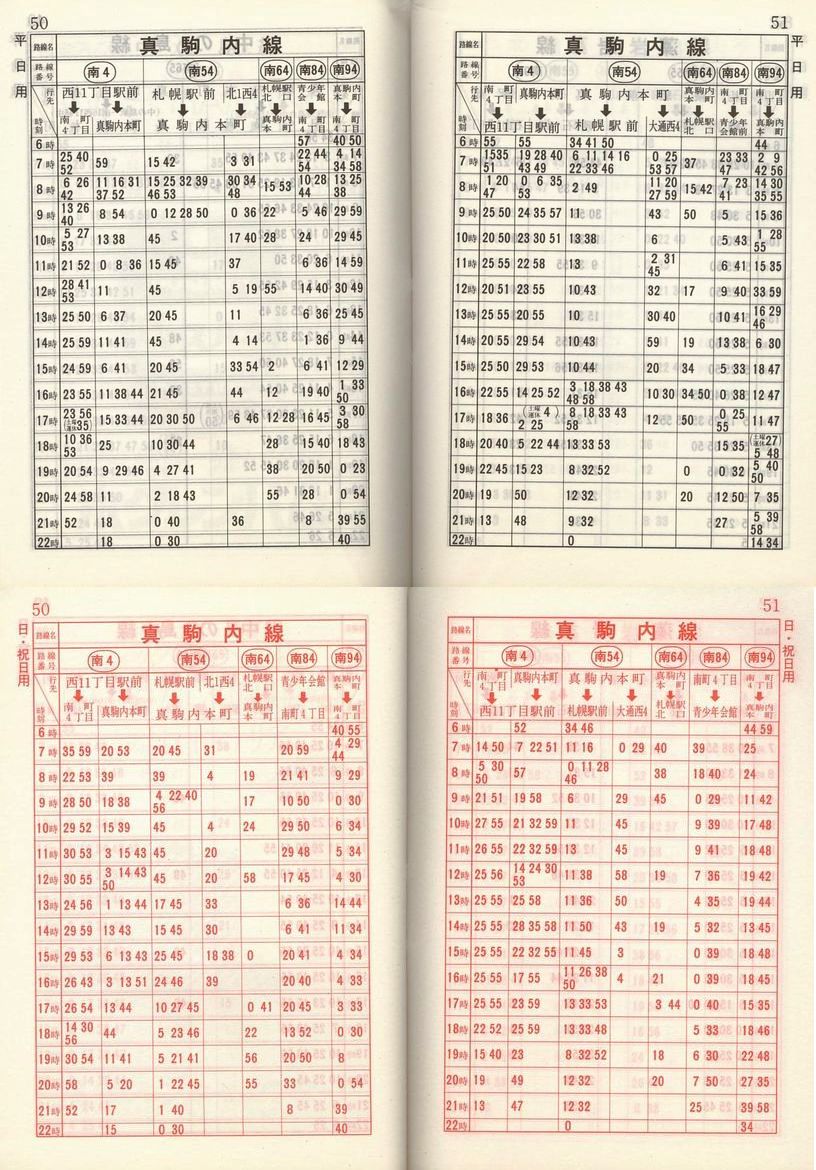 50
平日用
路線名 真駒内線
路線番号 南4 南54 南64 南84 南94
行先 時刻
西11丁目駅前 札幌駅前 北1西4 札幌駅北口 青少年会館 真駒内本町
南町4丁目 真駒内本町 真駒内本町 真駒内本町 南町4丁目 南町4丁目
6時 57 40 50
7時 25 40 52 59 15 42 3 31 22 44 54 4 14 34 58
8時 6 26 42 11 16 31 37 52 15 25 32 39 46 53 30 34 48 15 53 10 28 44 13 25 38
9時 13 26 40 8 54 0 12 28 50 0 36 22 5 46 29 59
10時 5 27 53 13 38 45 17 40 28 24 29 45
11時 21 52 0 8 36 15 45 37 6 36 14 59
12時 28 41 53 11 45 5 19 55 14 40 30 49
13時 25 50 6 37 20 45 11 6 36 25 45
14時 25 59 11 41 45 4 14 1 36 9 44
15時 24 59 6 41 20 45 33 54 2 6 41 12 29
16時 23 55 11 38 44 21 45 44 12 19 40 1 33 50
17時 23 56 (土曜運休35) 15 33 44 20 30 50 6 46 12 28 16 45 3 30 58
18時 10 36 53 25 10 30 44 28 15 40 18 43
19時 20 54 9 29 46 4 27 41 38 20 50 0 23
20時 24 58 11 2 18 43 55 28 0 54
21時 52 18 0 40 36 8 39 55
22時 18 0 30 40
51
平日用
路線名 真駒内線
路線番号 南4 南54 南64 南84 南94
行先 時刻
南町4丁目 真駒内本町 真駒内本町 真駒内本町 南町4丁目 南町4丁目
西11丁目駅前 札幌駅前 大通西4 札幌駅北口 青少年会館前 真駒内本町
6時 55 55 34 41 50 44
7時 15 35 51 19 28 40 43 49 6 11 14 16 22 33 46 0 25 53 57 37 23 33 47 2 9 42 56
8時 1 20 47 0 6 35 53 2 49 11 20 27 59 15 42 7 23 41 14 30 35 55
9時 25 50 24 35 57 11 43 50 5 15 36
10時 20 50 23 30 51 13 38 6 5 43 1 28 55
11時 25 55 22 58 13 2 31 45 6 41 15 35
12時 20 51 23 55 10 43 32 17 9 40 33 59
13時 25 55 20 55 15 30 40 10 41 16 29 46
14時 20 55 29 54 10 43 59 19 13 38 6 30
15時 25 50 29 53 10 44 20 34 5 33 18 47
16時 22 55 14 25 52 3 18 38 43 48 58 10 30 34 50 0 38 12 47
17時 18 36 (土曜運休4) 2 25 8 18 33 43 58 12 50 0 25 55 11 47
18時 20 40 5 22 44 13 33 53 15 35 (土曜運休27) 5 48
19時 22 45 15 23 8 32 52 0 0 32 5 40 50
20時 19 50 12 32 20 12 50 7 35
21時 13 48 9 32 27 5 39 58
22時 0 14 34
50
日・祝日用
路線名 真駒内線
路線番号 南4 南54 南64 南84 南94
行先 時刻
西11丁目駅前 札幌駅前 北1西4 札幌駅北口 青少年会館 真駒内本町
南町4丁目 真駒内本町 真駒内本町 真駒内本町 南町4丁目 南町4丁目
6時 40 55
7時 35 59 20 53 20 45 31 20 59 4 29 44
8時 22 53 39 39 4 19 21 41 9 29
9時 28 50 18 38 4 22 40 56 17 10 50 0 30
10時 29 52 15 39 45 4 24 29 50 6 34
11時 30 53 3 15 43 45 20 29 48 5 34
12時 30 55 3 14 43 50 45 20 58 17 45 4 30
13時 24 56 1 13 44 17 45 33 6 36 14 44
14時 29 59 13 43 15 45 30 6 41 11 34
15時 29 53 6 13 43 25 45 18 38 0 20 41 4 34
16時 26 43 3 13 51 24 46 39 20 40 4 33
17時 26 54 13 44 10 27 45 0 41 20 45 3 33
18時 14 30 56 44 5 23 46 22 13 52 0 30
19時 30 54 11 41 5 21 41 56 20 50 8
20時 58 5 20 1 22 45 55 33 0 54
21時 52 17 1 40 8 39
22時 15 0 30 40
51
日・祝日用
路線名 真駒内線
路線番号 南4 南54 南64 南84 南94
行先 時刻
南町4丁目 真駒内本町 真駒内本町 真駒内本町 南町4丁目 南町4丁目
西11丁目駅前 札幌駅前 大通西4 札幌駅北口 青少年会館 真駒内本町
6時 52 34 46 44 59
7時 14 50 7 22 51 11 16 0 29 40 39 25
8時 5 30 50 57 0 11 28 46 38 18 40 24
9時 21 51 19 58 6 29 45 0 29 11 42
10時 27 55 21 32 59 11 45 9 39 17 48
11時 26 55 22 32 59 13 45 9 41 18 48
12時 25 56 14 24 30 53 11 38 58 19 7 36 19 42
13時 25 55 25 58 11 36 50 4 35 19 44
14時 25 55 28 35 58 11 50 43 19 5 32 13 45
15時 25 55 22 32 55 11 45 3 0 39 18 48
16時 25 55 17 55 11 26 38 50 4 21 0 39 18 45
17時 25 55 23 59 13 33 53 3 44 0 40 15 35
18時 22 52 25 59 13 33 48 5 33 18 46
19時 15 40 23 8 32 52 18 6 30 22 48
20時 19 49 12 32 20 7 50 27 35
21時 13 47 12 32 25 39 58
22時 0 34